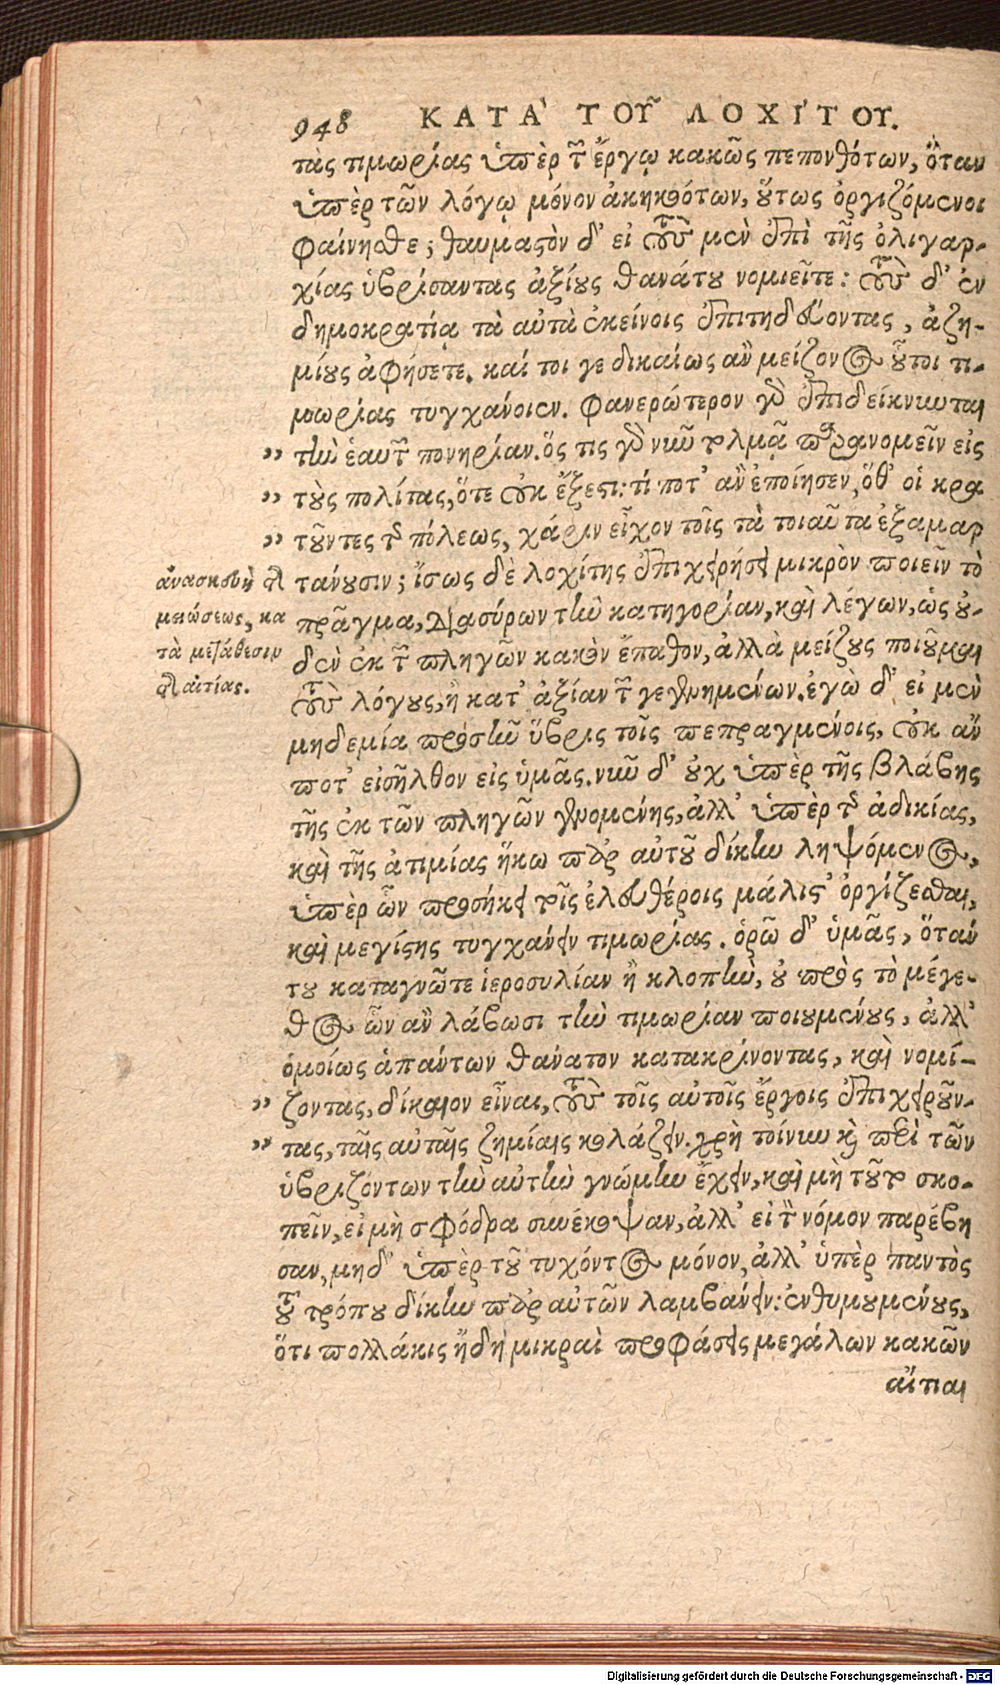 948 ΚΑΤΑ ΤΟΥ ΛΟΧΙΤΟΥ.
τὰς τιμωρίας ὑπὲρ τῶν ἔργῳ κακῶς πεπονθότων, ὅταν
ὑπὲρ τῶν λόγῳ μόνον ἀκηκοότων, οὕτως ὀργιζόμενοι
φαίνησθε; θαυμαστὸν δ' εἰ τοὺς μὲν ἐπὶ τῆς ὀλιγαρ-
χίας ὑβρίσαντας ἀξίους θανάτου νομιεῖτε: τοὺς δ' ἐν
δημοκρατίᾳ τὰ αὐτὰ ἐκείνοις ἐπιτηδεύοντας, ἀζη-
μίους ἀφήσετε. καί τοι γε δικαίως ἂν μείζονος οὗτοι τι-
μωρίας τυγχάνοιεν. φανερώτερον γὰρ ἐπιδείκνυνται
" τὴν ἑαυτῶν πονηρίαν. ὅς τις γὰρ νῦν τολμᾷ παρανομεῖν εἰς
" τοὺς πολίτας, ὅτε οὐκ ἔξεστι: τί ποτ' ἂν ἐποίησεν, ὅθ' οἱ κρα
" τοῦντες τῆς πόλεως, χάριν εἶχον τοῖς τὰ τοιαῦτα ἐξαμαρ
τάνουσιν; ἴσως δὲ λοχίτης ἐπιχειρήσει μικρὸν ποιεῖν τὸ
πρᾶγμα, διασύρων τὴν κατηγορίαν, καὶ λέγων, ὡς οὐ-
δὲν ἐκ τῶν πληγῶν κακὸν ἔπαθον, ἀλλὰ μείζους ποιοῦμαι
τοὺς λόγους, ἢ κατ' ἀξίαν τῶν γεγενημένων. ἐγὼ δ' εἰ μὲν
μηδεμία προσῆν ὕβρις τοῖς πεπραγμένοις, οὐκ ἄν
ποτ' εἰσῆλθον εἰς ὑμᾶς. νῦν δ' οὐχ ὑπὲρ τῆς βλάβης
τῆς ἐκ τῶν πληγῶν γενομένης, ἀλλ' ὑπὲρ τῆς ἀδικίας,
καὶ τῆς ἀτιμίας ἥκω παρ' αὐτοῦ δίκην ληψόμενος,
ὑπὲρ ὧν προσήκει τοῖς ἐλευθέροις μάλιστ' ὀργίζεσθαι,
καὶ μεγίστης τυγχάνειν τιμωρίας. ὁρῶ δ' ὑμᾶς, ὅταν
του καταγνῶτε ἱεροσυλίαν ἢ κλοπὴν, οὐ πρὸς τὸ μέγε-
θος ὧν ἂν λάβωσι τὴν τιμωρίαν ποιουμένους, ἀλλ'
ὁμοίως ἁπάντων θάνατον κατακρίνοντας, καὶ νομί-
" ζοντας, δίκαιον εἶναι, τοὺς τοῖς αὐτοῖς ἔργοις ἐπιχειροῦν-
" τας, ταῖς αὐταῖς ζημίαις κολάζειν. χρὴ τοίνυν καὶ περὶ τῶν
ὑβριζόντων τὴν αὐτὴν γνώμην ἔχειν, καὶ μὴ τοῦτο σκο-
πεῖν, εἰ μὴ σφόδρα συνέκοψαν, ἀλλ' εἰ τὸν νόμον παρέβη
σαν, μηδ' ὑπὲρ τοῦ τυχόντος μόνον, ἀλλ' ὑπὲρ παντὸς
τοῦ τρόπου δίκην παρ' αὐτῶν λαμβάνειν: ἐνθυμουμένους,
ὅτι πολλάκις ἤδη μικραὶ προφάσεις μεγάλων κακῶν
αἴτιαι
ἀνασκευὴ τῆς
μειώσεως, κα
τὰ μετάθεσιν
τῆς αἰτίας.
Digitalisierung gefördert durch die Deutsche Forschungsgemeinschaft - DFG